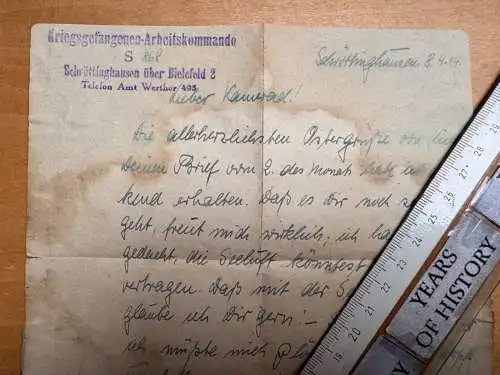 Kriegsgefangenen-Arbeitskommando
S 868
Schröttinghausen über Bielefeld 2
Telefon Amt Werther 495
Schröttinghausen 8.4.44.
Lieber Kamerad!
Die allerherzlichsten Ostergrüße von
Deinen Brief vom 2. des Monats
kend erhalten. Daß es Dir noch
geht, freut mich wirklich, ich
gedacht, die Seeluft könntest
vertragen. Daß mit der
glaube ich Dir gern! –
ich müßte mich
YEARS
OF HISTORY